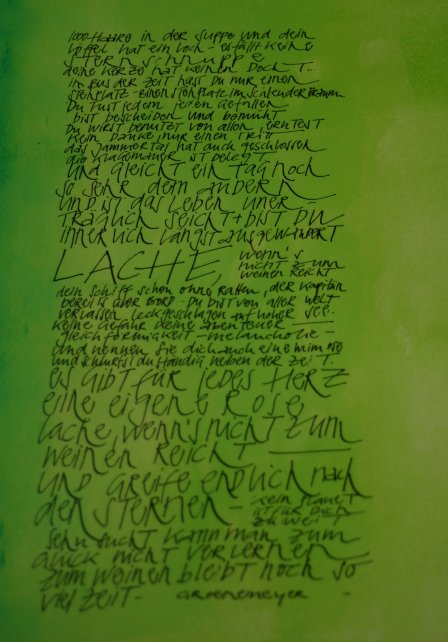 1000 Haare in der Suppe und dein
Löffel hat ein Loch - es fällt keine
Sternschnuppe
deine Kerze hat keinen Docht...
im Bus der Zeit hast Du nur einen
Stehplatz - einen Stehplatz im Schleudertraum
Du tust jedem jeden Gefallen
bist bescheiden und bemüht
Du wirst benutzt von allen, erntest
kein Danke nur einen Tritt
das Jammertal hat auch geschlossen
die Klagemauer ist belegt
und gleicht ein Tag noch
so sehr dem andern
und ist das Leben uner-
träglich seicht + bist Du
innerlich längst ausgewandert
LACHE, wenn's
nicht zum
weinen reicht
dein Schiff schon ohne Ratten, der Kapitän
bereits über Bord - Du bist von aller Welt
verlassen leckgeschlagen auf hoher See.
keine Gefahr keine Abenteuer
gleichförmigkeit - melancholie -
und nennen sie dich auch eine mimose
und schaffst du ständig neben der Zeit.
es gibt für jedes Herz
eine eigene Rose,
lache, wenn's nicht zum
weinen reicht
und greife endlich nach
den Sternen - kein Planet
ist für Dich
zu weit
Sehnsucht kann man zum
Glück nicht verlernen
zum weinen bleibt noch so
viel Zeit - Groenemeyer -